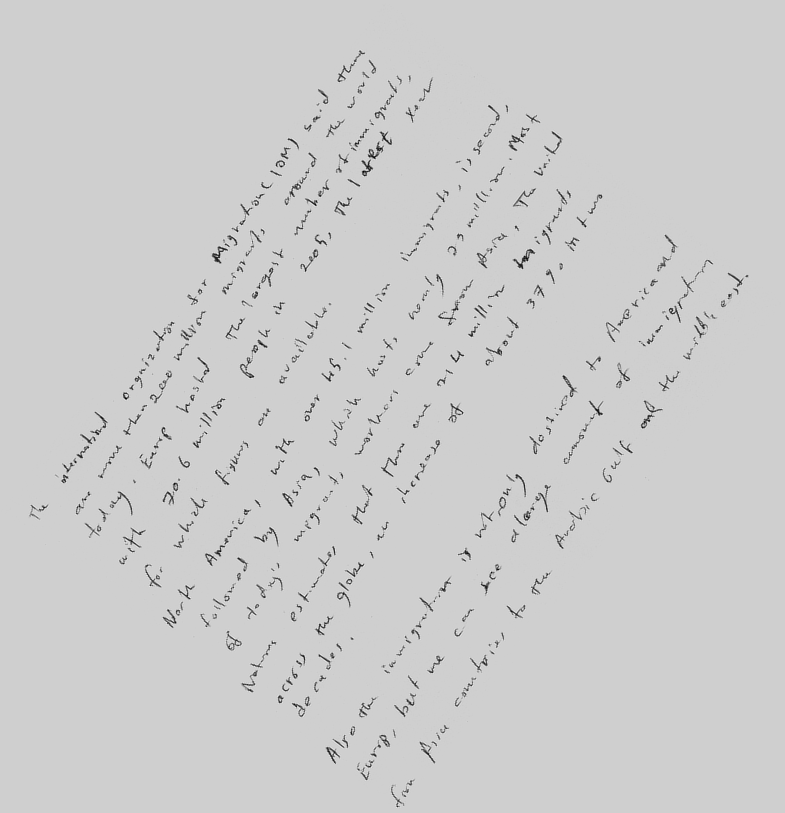 The international organization for Migration (IOM) said there
are more than 200 million migrants around the world
today. Europ hosted The largest number of immigrants,
with 70.6 million people in 2005, The latest year
for which figures are available.
North America, with over 45.1 million immigrants, is second,
followed by Asia, which hosts nearly 25 million. Most
of today's migrant workers come from Asia, The United
Nations estimates that there are 214 million migrants
across the globe, an increase of about 37% in two
decades.
Also the immigration is not only desired to America and
Europ, but we can see a large amount of immigration
from Asia countries to the Arabic Gulf and the middle east.